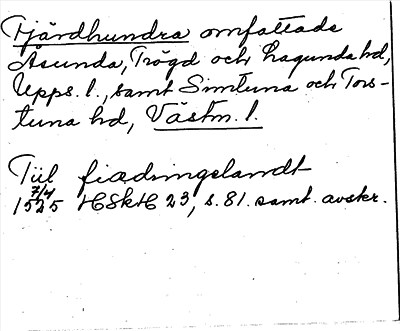 Fjärdhundra omfattade
Åsunda, Trögd och Lagunda hd,
Upps. l., samt Simtuna och Tors-
tuna hd, Västm. l.
Till fiædringslandt
7/4
1525 HSkH 23, s. 81. samt. avskr.